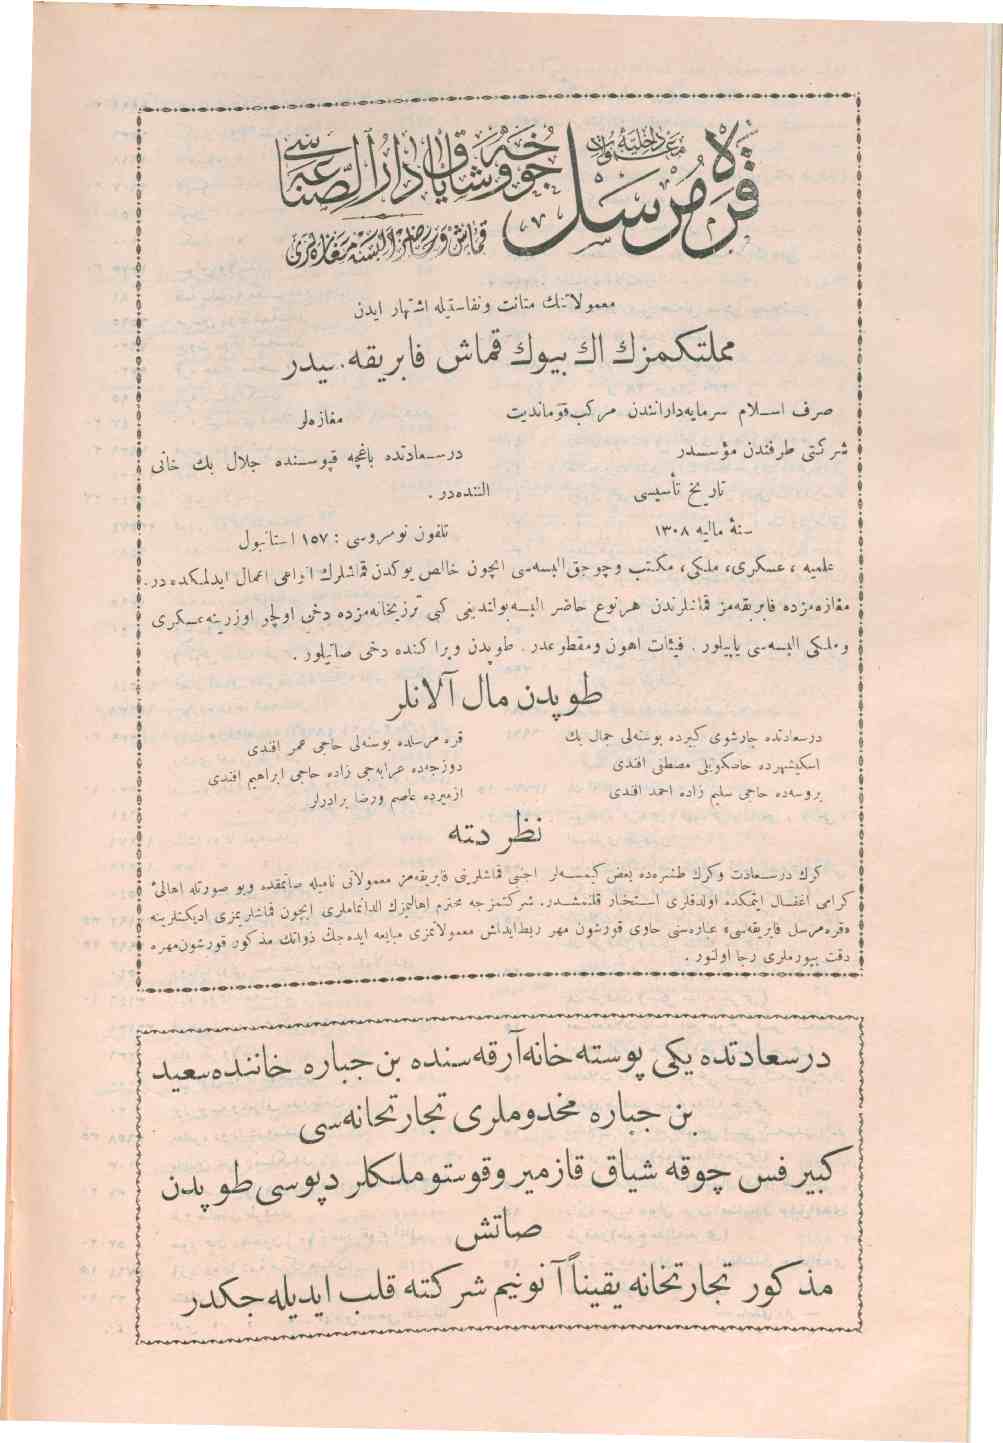 قره مرسل
جوخه وشاياق دار الصناعه سى
قماش وحاضر البسه مغازه لرى
معمولاتنك متانت ونفاستيله اشتهار ايدن
مملكتمزك اك بيوك قماش فابريقه سيدر
صرف اسلام سرمايه‌دارانندن مركب قوماندیت
شركتى طرفندن مؤسسدر
تاريخ تأسيسى
سنهٔ ماليه ١٣٠٨
مغازه‌لر
درسعادتده باغچه قپوسنده جلال بك خانى
التنده‌در .
تلفون نومروسى : ١٥٧ استانبول
علميه ، عسكرى، ملكى، مكتب وچوجق البسه‌سى ايچون خالص يوكدن قماشلرك انواعى اعمال ايدلمكده در.
مغازه‌مزده فابريقه‌مز قماشلرندن هرنوع حاضر البسه بولنديغى كبى ترزيخانه‌مزده دخى اولچو اوزرينه عسكرى
وملكى البسه‌سى ياپيلور . فيئات اهون ومقطوعدر . طوپدن وپراكنده دخى صاتيلور .
طوپدن مال آلانلر
درسعادتده چارشوى كبيرده بوسنه‌لى جمال بك
اسكيشهرده حاصكويلى مصطفى افندى
بروسه‌ده حاجى سليم زاده احمد افندى
قره مرسلده بوسنه‌لى حاجى عمر افندى
دوزجه‌ده عرابه‌جى زاده حاجى ابراهيم افندى
ازميرده عاصم ورضا برادرلر
نظر دقته
كرك درسعادت وكرك طشره‌ده بعض كيمسه‌لر اجنبى قماشلرينى فابريقه‌مز معمولاتى ناميله صاتمقده وبو صورتله اهالئ
كرامى اغفال ايتمكده اولدقلرى استخبار قلنمشدر. شركتمزجه محترم اهاليمزك الدانماملرى ايچون قماشاريمزى اديكلرينه
«قره مرسل فابريقه‌سى» عباره‌سنى حاوى قورشون مهر ربط ايداش معمولاتمزى مبايعه ايده‌جك ذواتك مذكور قورشون مهره
دقت بيورملرى رجا اولنور .
درسعادتده يكى پوسته‌خانه آرقه‌سنده بن جباره خاننده سعيد
بن جباره مخدوملرى تجارتخانه‌سى
كبير فس چوقه شياق قازمير وقوستوملكلر دپوسى طوپدن
صاتش
مذكور تجارتخانه يقيناً آنونيم شركته قلب ايديله‌جكدر